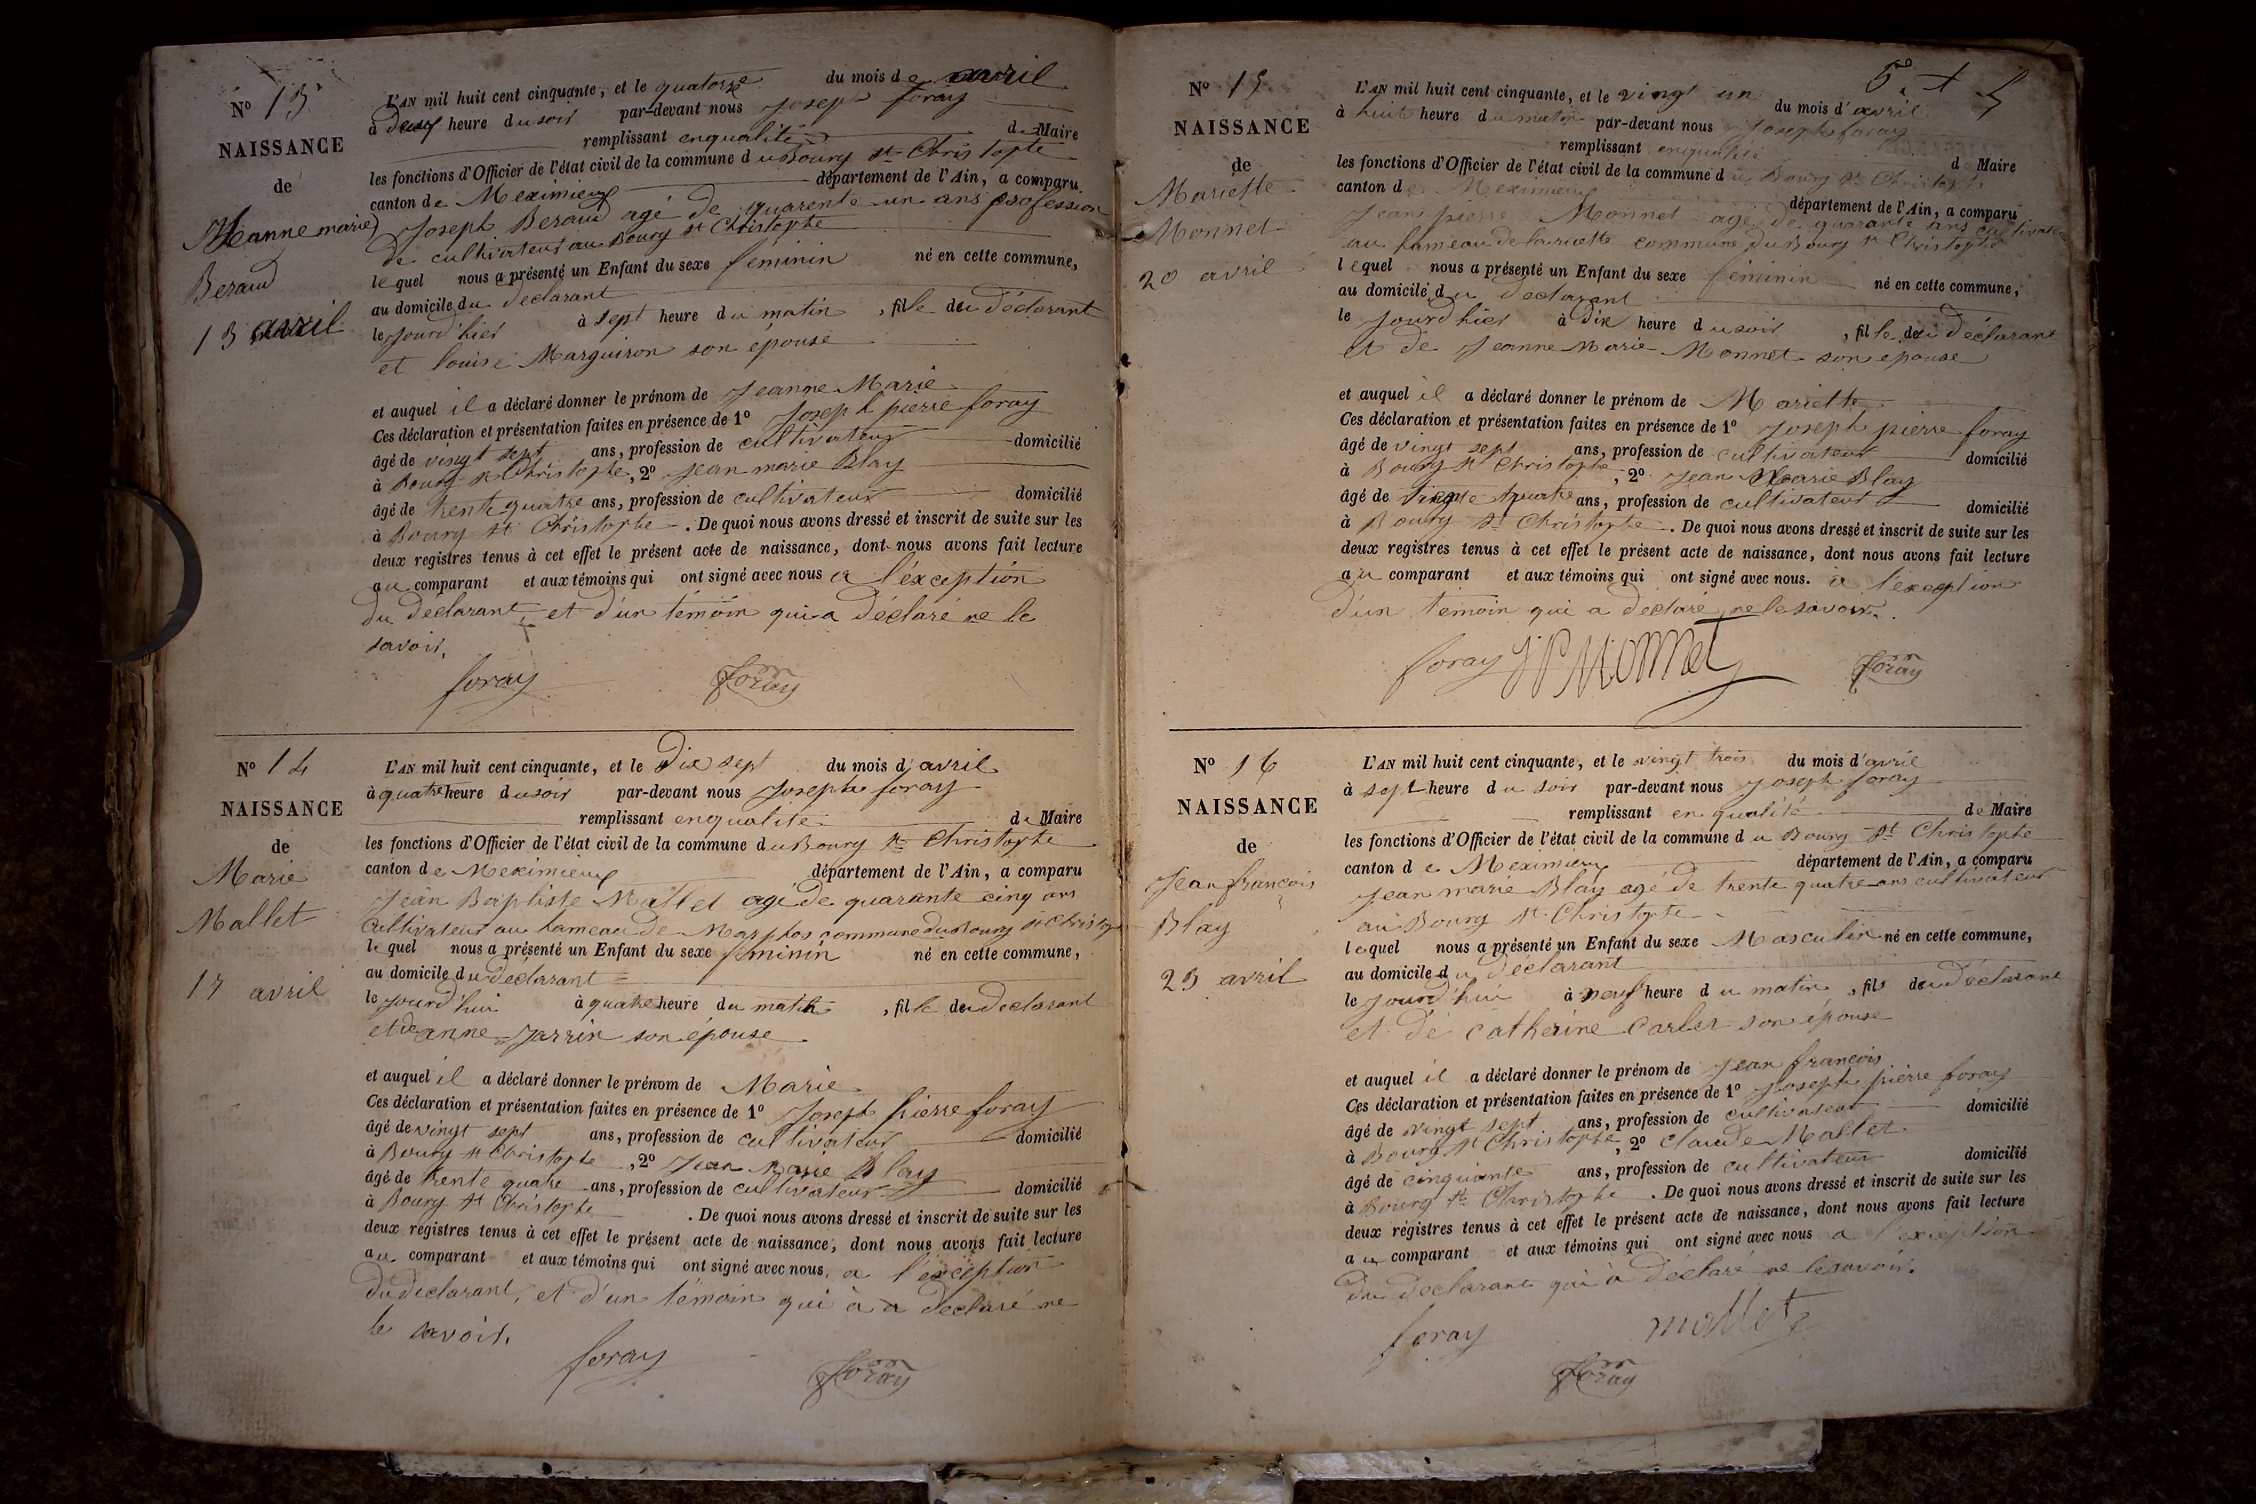 N° 13
NAISSANCE
de
Jeanne marie
Beraud
13 avril
L'AN mil huit cent cinquante, et le quatorze du mois de avril
à deux heure du soir par-devant nous Joseph foray
remplissant en qualité de Maire
les fonctions d'Officier de l'état civil de la commune du Bourg St Christophe
canton de Meximieux département de l'Ain, a comparu
Joseph Beraud agé de quarente un ans profession
de cultivateur au Bourg St Christophe
lequel nous a présenté un Enfant du sexe feminin né en cette commune,
au domicile du declarant
le jourd'hier à sept heure du matin, fille du déclarant
et louise Marguiron son epouse
et auquel il a déclaré donner le prénom de Jeanne Marie
Ces déclaration et présentation faites en présence de 1° Joseph pierre foray
âgé de vingt sept ans, profession de cultivateur domicilié
à Bourg St Christophe, 2° Jean marie Blay
âgé de trente quatre ans, profession de cultivateur domicilié
à Bourg St Christophe. De quoi nous avons dressé et inscrit de suite sur les
deux registres tenus à cet effet le présent acte de naissance, dont nous avons fait lecture
au comparant et aux témoins qui ont signé avec nous a l'éxception
du déclarant, et d'un témoin qui a déclaré ne le
savoir.
foray foray
N° 14
NAISSANCE
de
Marie
Mallet
17 avril
L'AN mil huit cent cinquante, et le Dix sept du mois d'avril
à quatre heure du soir par-devant nous Joseph foray
remplissant en qualité de Maire
les fonctions d'Officier de l'état civil de la commune du Bourg St Christophe
canton de Meximieux département de l'Ain, a comparu
Jean Baptiste Mallet agé de quarante cinq ans
cultivateur au hameau de Marphos commune du Bourg St Christop
lequel nous a présenté un Enfant du sexe feminin né en cette commune,
au domicile du déclarant
le jourd'hui à quatre heure du matin, fille du declarant
et de anne Jarrin son épouse
et auquel il a déclaré donner le prénom de Marie
Ces déclaration et présentation faites en présence de 1° Joseph pierre foray
âgé de vingt sept ans, profession de cultivateur domicilié
à Bourg St Christophe, 2° Jean Marie Blay
âgé de trente quatre ans, profession de cultivateur domicilié
à Bourg St Christophe. De quoi nous avons dressé et inscrit de suite sur les
deux registres tenus à cet effet le présent acte de naissance, dont nous avons fait lecture
au comparant et aux témoins qui ont signé avec nous, a l'éxception
du declarant, et d'un témoin qui à a declaré ne
le savoir.
foray foray
N° 15
NAISSANCE
de
Mariette
Monnet
20 avril
L'AN mil huit cent cinquante, et le vingt un du mois d'avril
à huit heure du matin par-devant nous Joseph foray
remplissant en qualité de Maire
les fonctions d'Officier de l'état civil de la commune du Bourg St Christophe
canton de Meximieux département de l'Ain, a comparu
Jean pierre Monnet agé de quarante ans cultivateur
au hameau de commune du Bourg St Christophe
lequel nous a présenté un Enfant du sexe féminin né en cette commune,
au domicile du declarant
le jourd'hier à Dix heure du soir, fille du déclarant
et de Jeanne Marie Monnet son epouse
et auquel il a déclaré donner le prénom de Mariette
Ces déclaration et présentation faites en présence de 1° Joseph pierre foray
âgé de vingt sept ans, profession de cultivateur domicilié
à Bourg St Christophe, 2° Jean Marie Blay
âgé de quatre ans, profession de cultivateur domicilié
à Bourg St Christophe. De quoi nous avons dressé et inscrit de suite sur les
deux registres tenus à cet effet le présent acte de naissance, dont nous avons fait lecture
au comparant et aux témoins qui ont signé avec nous. a l'exception
d'un témoin qui a declaré ne le savoir.
foray JP Monnet foray
N° 16
NAISSANCE
de
Jean françois
Blay
23 avril
L'AN mil huit cent cinquante, et le vingt trois du mois d'avril
à sept heure du soir par-devant nous Joseph foray
remplissant en qualité de Maire
les fonctions d'Officier de l'état civil de la commune du Bourg St Christophe
canton de Meximieux département de l'Ain, a comparu
Jean marie Blay agé de trente quatre ans cultivateur
au Bourg St Christophe
lequel nous a présenté un Enfant du sexe Masculin né en cette commune,
au domicile du déclarant
le jourd'hui à neuf heure du matin, fils du déclarant
et de catherine Carler son épouse
et auquel il a déclaré donner le prénom de Jean françois
Ces déclaration et présentation faites en présence de 1° Joseph pierre foray
âgé de vingt sept ans, profession de cultivateur domicilié
à Bourg St Christophe, 2° claude Mallet
âgé de cinquante ans, profession de cultivateur domicilié
à Bourg St Christophe. De quoi nous avons dressé et inscrit de suite sur les
deux régistres tenus à cet effet le présent acte de naissance, dont nous avons fait lecture
au comparant et aux témoins qui ont signé avec nous a l'exception
du declarant qui à declaré ne le savoir.
foray mallet
foray